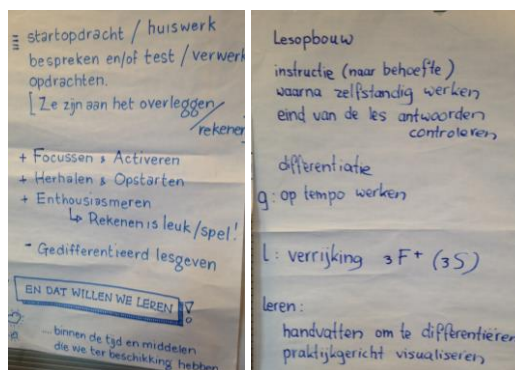 startopdracht / huiswerk
bespreken en/of test / verwerk
opdrachten.
[ Ze zijn aan het overleggen/
rekenen
+ Focussen & Activeren
+ Herhalen & Opstarten
+ Enthousiasmeren
↳ Rekenen is leuk/spel!
- Gedifferentieerd lesgeven
EN DAT WILLEN WE LEREN!
... binnen de tijd en middelen
die we ter beschikking hebben
Lesopbouw
instructie (naar behoefte)
waarna zelfstandig werken
eind van de les antwoorden
controleren
differentiatie
g: op tempo werken
l: verrijking 3F+ (3S)
leren:
handvatten om te differentiëren
praktijkgericht visualiseren